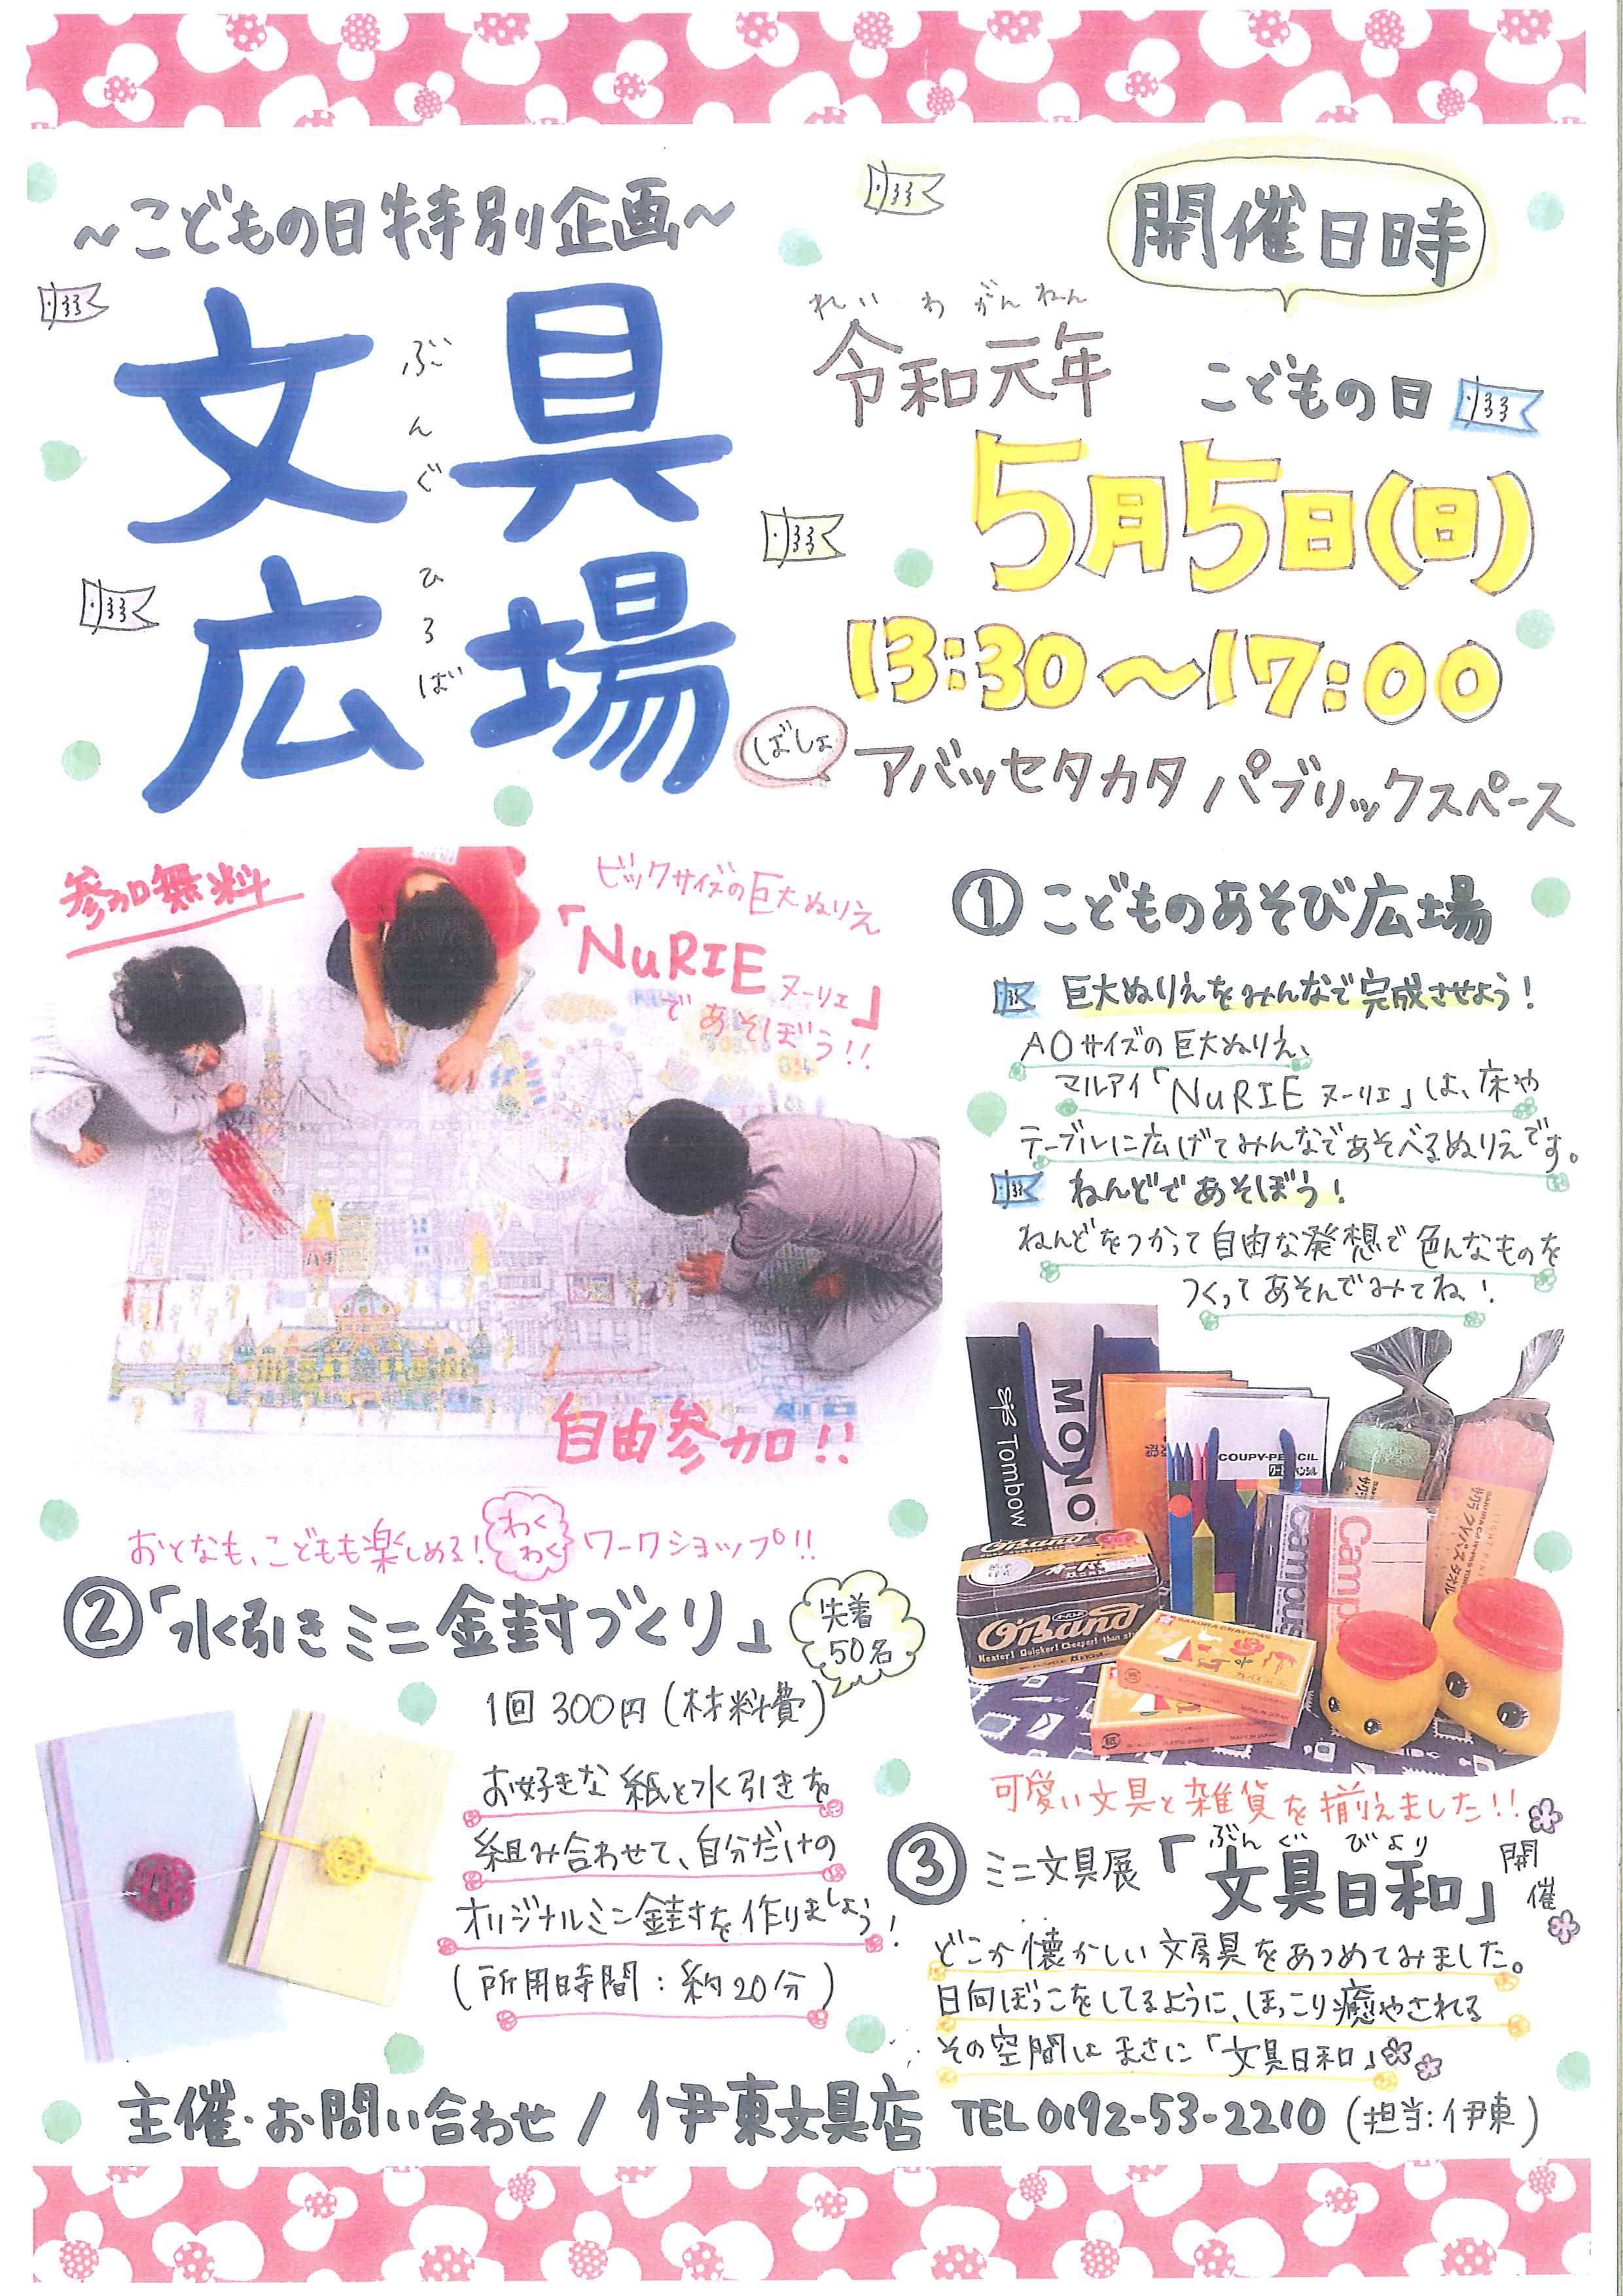 ～こどもの日特別企画～
文具
ぶんぐ
広場
ひろば
開催日時
れいわがんねん
令和元年
こどもの日
5月5日(日)
13:30～17:00
ばしょ
アバッセタカタ パブリックスペース
参加無料
ビックサイズの巨大ぬりえ
「NuRIE ヌーリエ」
であそぼう!!
自由参加!!
① こどものあそび広場
巨大ぬりえをみんなで完成させよう!
A0サイズの巨大ぬりえ、
マルアイ「NuRIE ヌーリエ」は、床や
テーブルに広げてみんなであそべるぬりえです。
ねんどであそぼう!
ねんどをつかって自由な発想で色んなものを
つくってあそんでみてね!
MONO
Tombow
COUPY-PENCIL
クーピーペンシル
Campus
Campus
サクラクレパスタオル
O'Band
O'Band
Neater! Quicker! Cheaper! than string
SAKURA CRAYPAS
おとなも、こどもも楽しめる! わくわく ワークショップ!!
②「水引きミニ金封づくり」
先着
50名
1回 300円 (材料費)
お好きな紙と水引きを
組み合わせて、自分だけの
オリジナルミニ金封を作りましょう!
(所用時間:約20分)
可愛い文具と雑貨を揃えました!!
③ ミニ文具展「文具日和」開催
ぶんぐびより
どこか懐かしい文房具をあつめてみました。
日向ぼっこをしてるように、ほっこり癒やされる
その空間はまさに「文具日和」
主催・お問い合わせ / 伊東文具店 TEL 0192-53-2210 (担当:伊東)